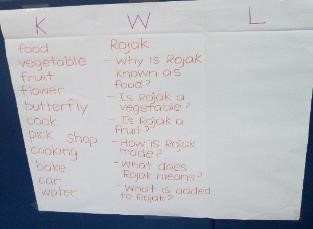 K W L
food
vegetable
fruit
flower
butterfly
cook
pick shop
cooking
bake
car
water
Rojak
- Why is Rojak
known as
food?
- Is Rojak a
vegetable?
- Is Rojak a
fruit?
- How is Rojak
made?
- What does
Rojak means?
- What is added
to Rojak?